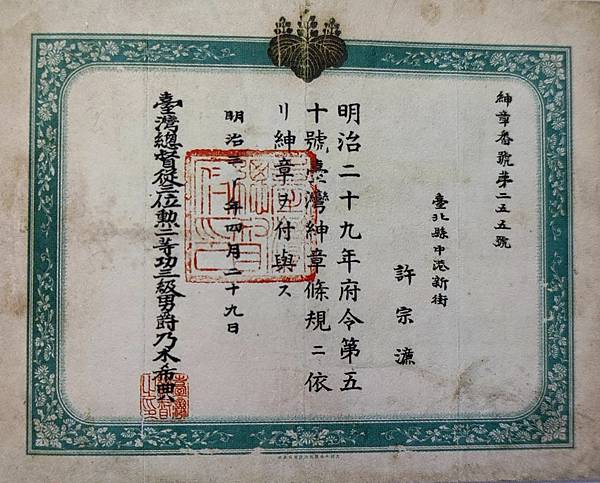 紳章番號第二五五號
臺北縣中港新街
許宗濂
明治二十九年府令第五
十號臺灣紳章條規ニ依
リ紳章ヲ付與ス
明治三十年四月二十九日
臺灣總督從三位勲二等功三級男爵乃木希典